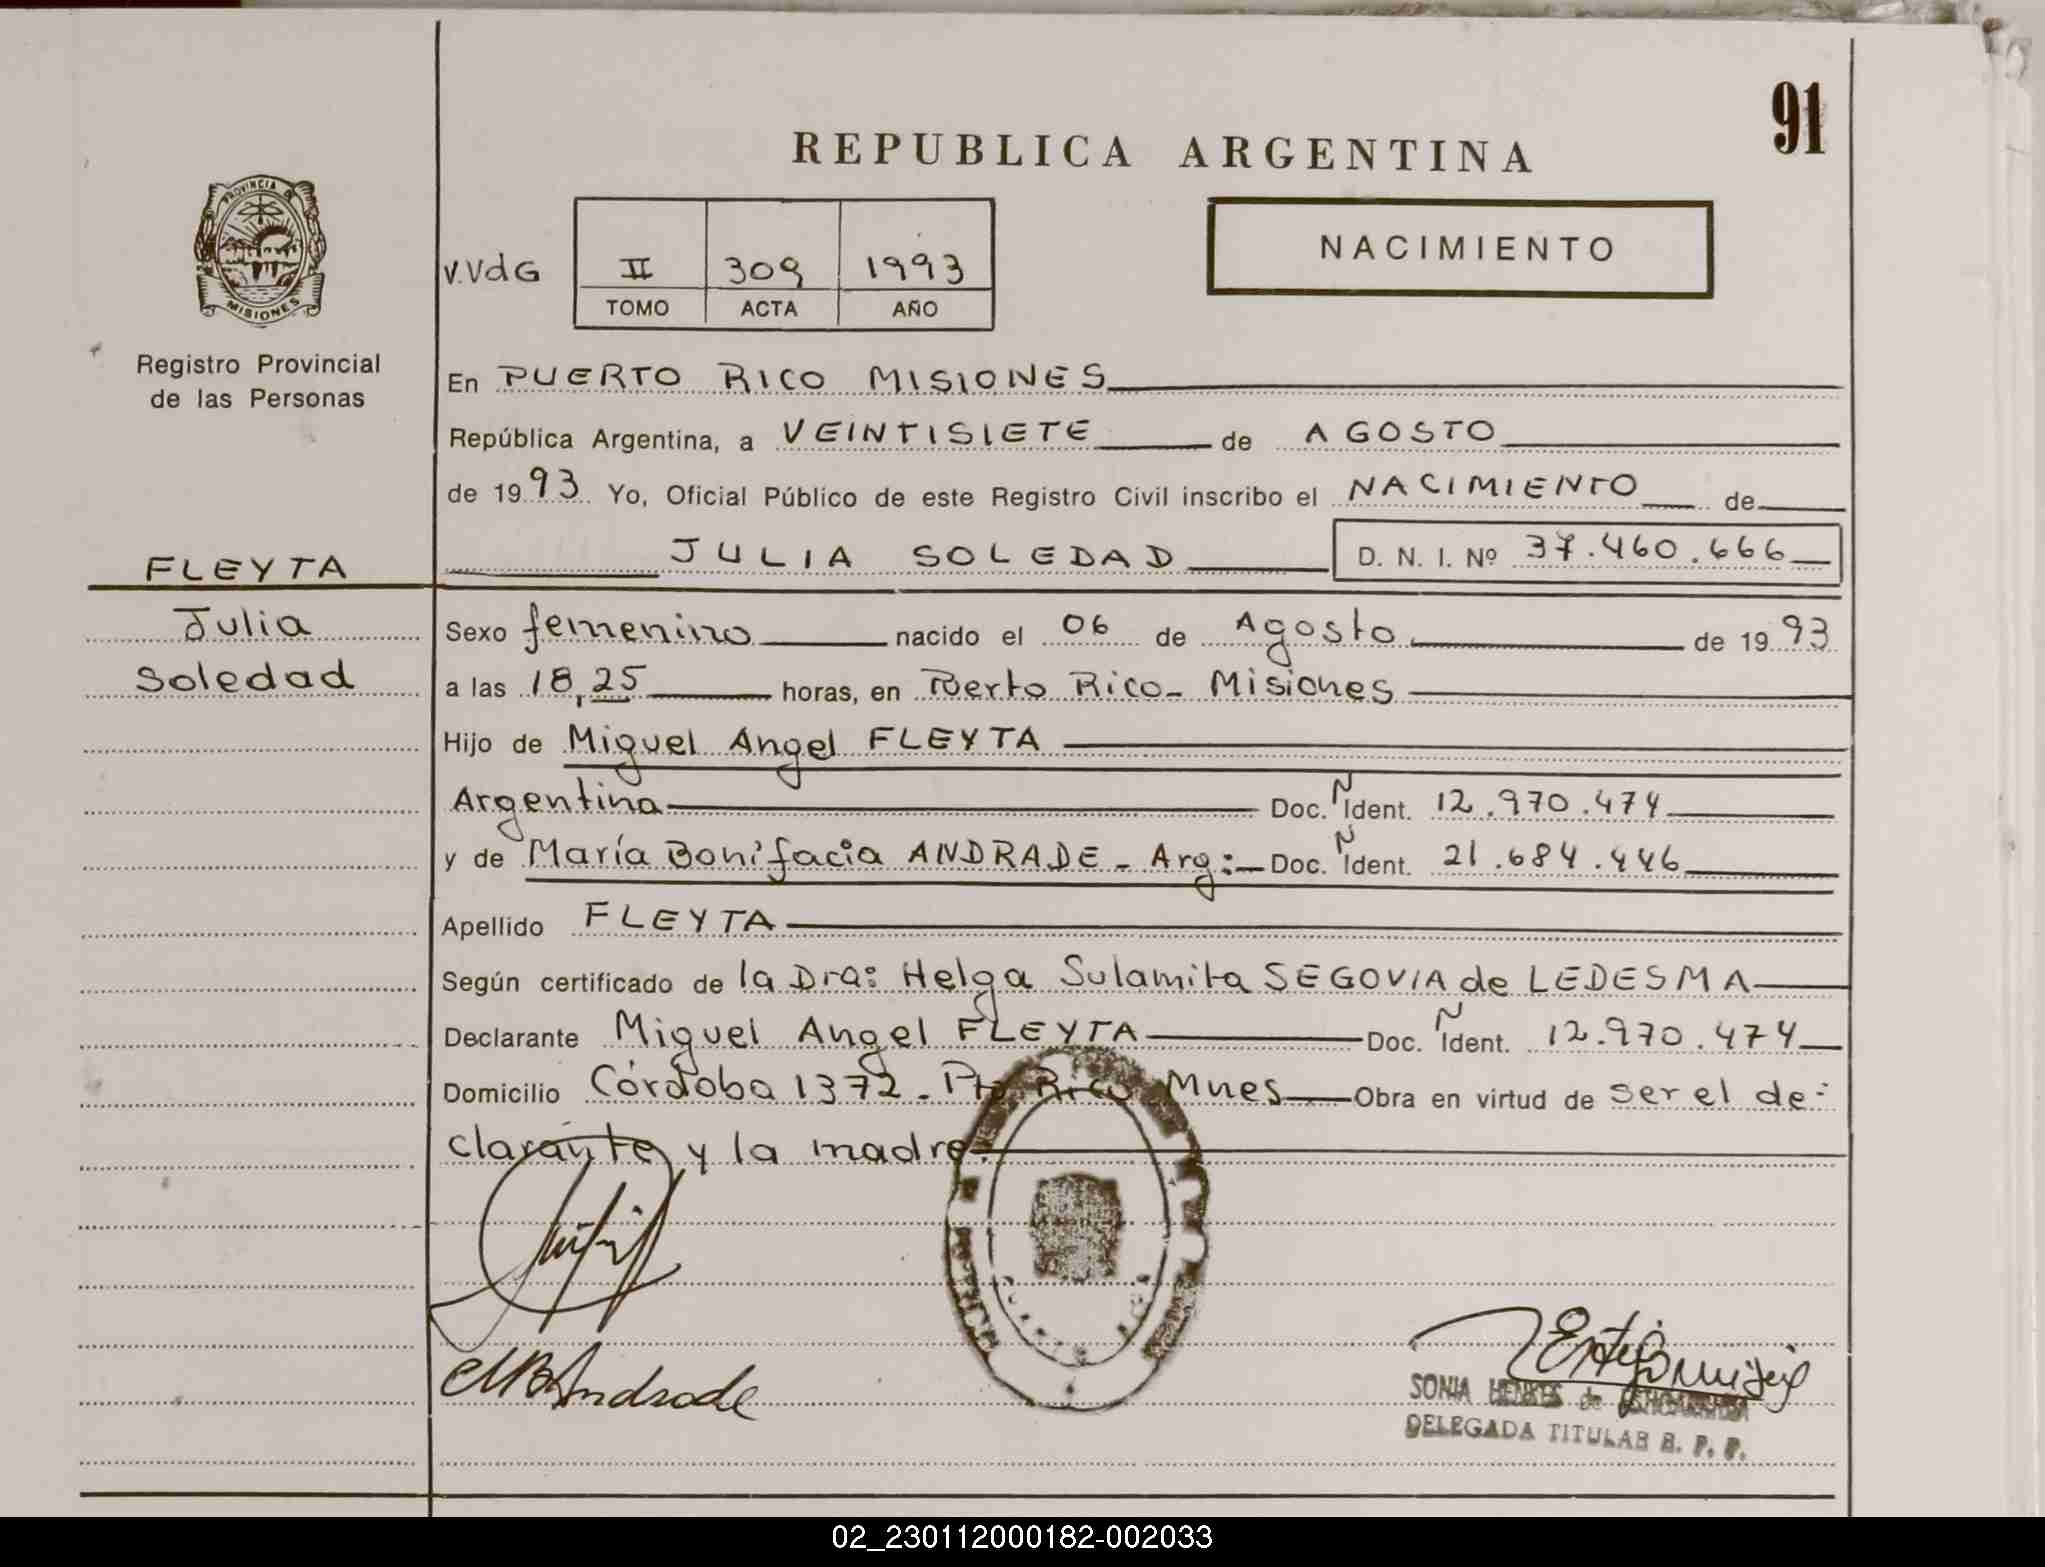 91
REPUBLICA ARGENTINA
PROVINCIA DE
MISIONES
Registro Provincial
de las Personas
V.VdG
II 309 1993
TOMO ACTA AÑO
NACIMIENTO
En PUERTO RICO MISIONES
República Argentina, a VEINTISIETE de AGOSTO
de 1993 Yo, Oficial Público de este Registro Civil inscribo el NACIMIENTO de
FLEYTA
JULIA SOLEDAD D. N. I. Nº 37.460.666
Julia
Soledad
Sexo femenino nacido el 06 de Agosto de 1993
a las 18,25 horas, en Puerto Rico- Misiones
Hijo de Miguel Angel FLEYTA
Argentina Doc. N Ident. 12.970.474
y de María Bonifacia ANDRADE - Arg: Doc. N Ident. 21.684.446
Apellido FLEYTA
Según certificado de la Dra: Helga Sulamita SEGOVIA de LEDESMA
Declarante Miguel Angel FLEYTA Doc. N Ident. 12.970.474
Domicilio Córdoba 1372. Pto Rico Mnes Obra en virtud de ser el de-
clarante y la madre.
MBAndrade
SONIA HENKES de
DELEGADA TITULAR R. P. P.
02_230112000182-002033